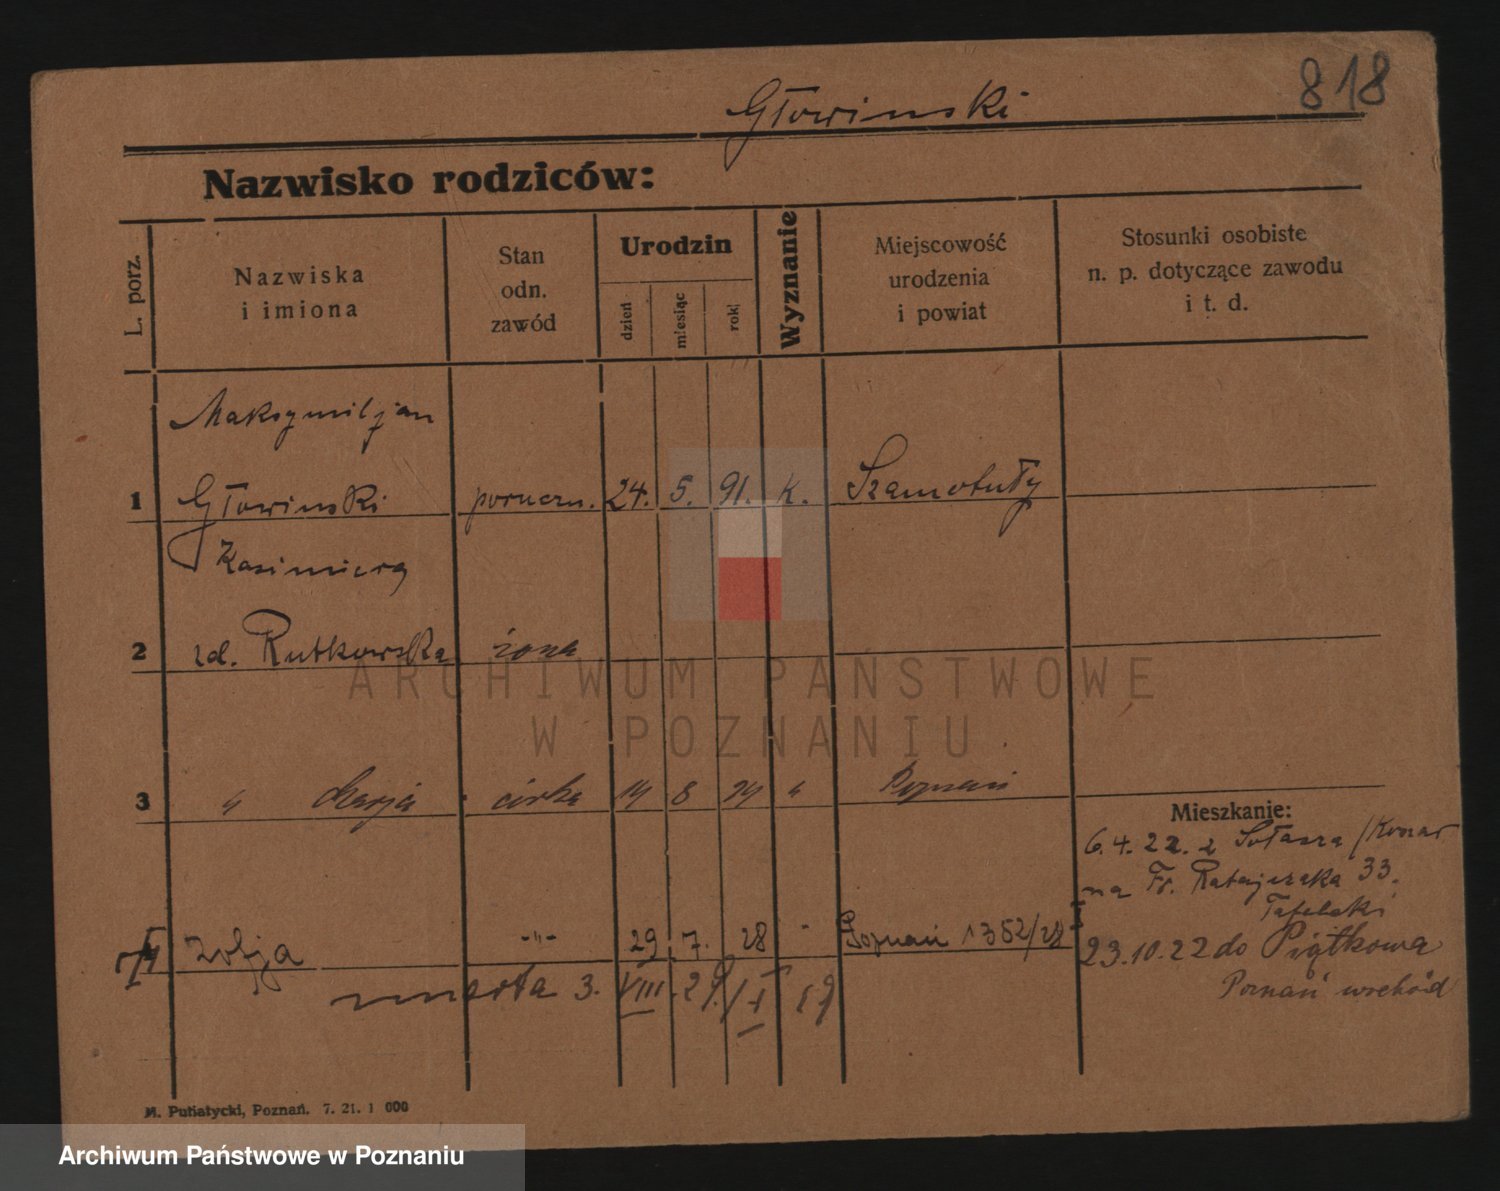 818
Głowinski
Nazwisko rodziców:
L. porz.
Nazwiska
i imiona
Stan
odn.
zawód
Urodzin
dzień
miesiąc
rok
Wyznanie
Miejscowość
urodzenia
i powiat
Stosunki osobiste
n. p. dotyczące zawodu
i t. d.
Maksymiljan
1 Głowinski poruczn. 24. 5. 91. K. Szamotuły
Kazimiera
2 zd. Rutkowska żona
3 " Marja córka 14 8 24 " Poznań
Mieszkanie:
6.4.22. z Sołacza /
na Fr. Ratajczaka 33.
4 Zofja -"- 29 7. 28 " Poznań 1352/28
23.10.22 do Piątkowa
Poznań wschód
umarła 3. VIII. 29
M. Putiatycki, Poznań. 7. 21. 1 000
ARCHIWUM PAŃSTWOWE
W POZNANIU
Archiwum Państwowe w Poznaniu